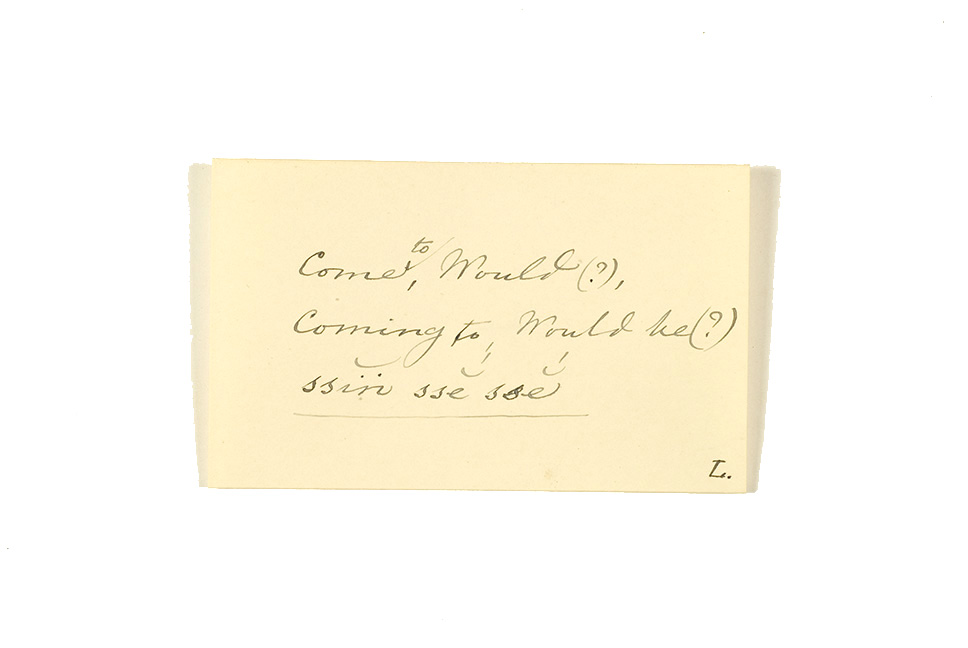 Come to, Would (?),
Coming to, Would be (?)
ssĭn ssĕ' ssĕ'
L.